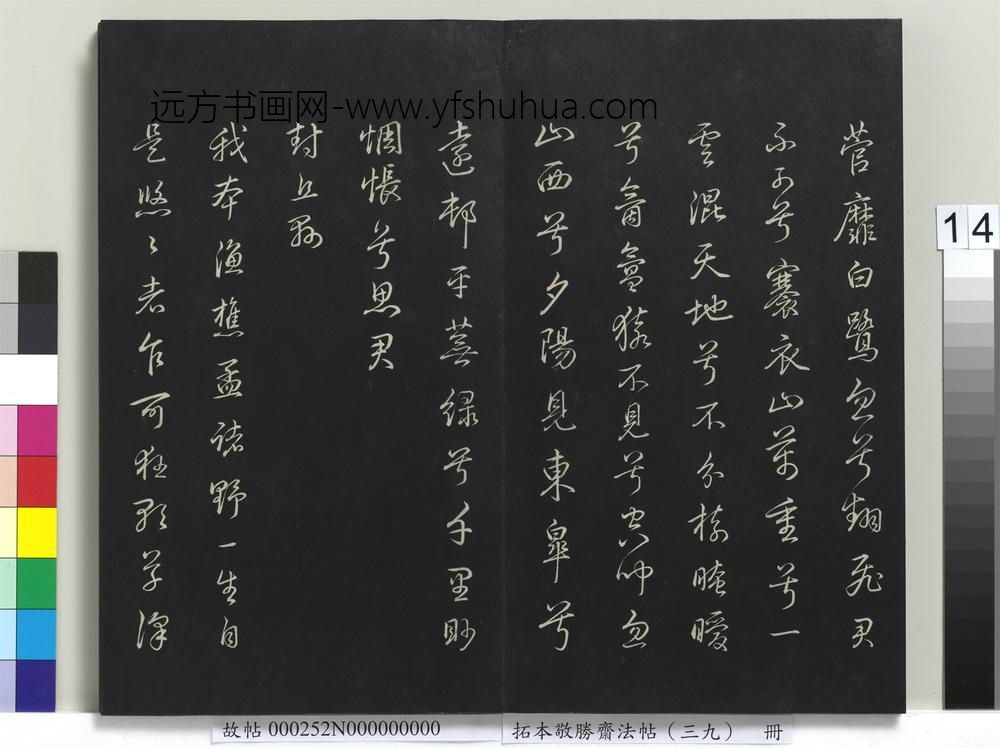 远方书画网-www.yfshuhua.com
菅靡白鷺忽兮翻飛君
不可兮褰衣山萬重兮一
雲混天地兮不分樹晻曖
兮氛氳猿不見兮空聞忽
山西兮夕陽見東皋兮
遠邨平蕪綠兮千里眇
惆悵兮思君
封丘縣
我本漁樵孟諸野一生自
是悠々者乍可狂歌草澤
14
故帖 000252N000000000
拓本敬勝齋法帖（三九） 冊